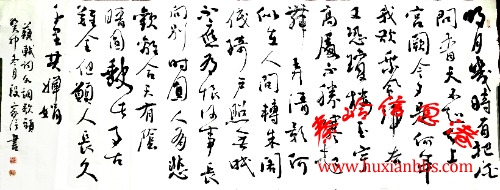 明月幾時有把酒
問青天不知天上
宮闕今夕是何年
我欲乘風歸去
又恐瓊樓玉宇
高處不勝寒起
舞弄清影何
似在人間轉朱閣
低綺戶照無眠
不應有恨何事長
向別時圓人有悲
歡離合月有陰
晴圓缺此事古
難全但願人長久
千里共嬋娟
蘇軾詞水調歌頭
癸卯年月段信書
www.huxianbbs.com